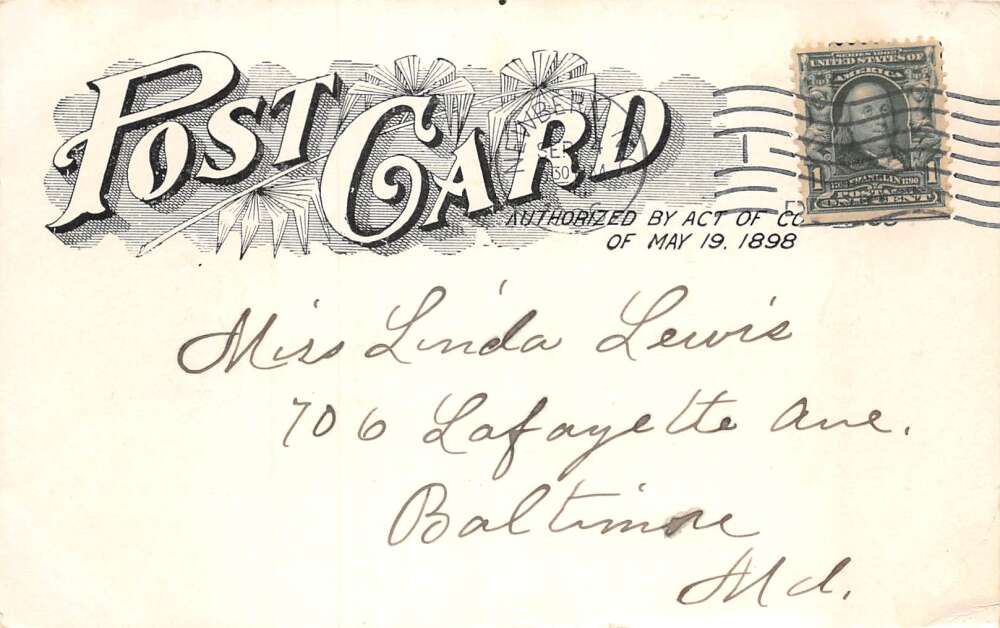 POST CARD
AUTHORIZED BY ACT OF
OF MAY 19, 1898
SERIES 1902
UNITED STATES OF
AMERICA
1 FRANKLIN 1790 1
ONE CENT
Miss Linda Lewis
706 Lafayette Ave.
Baltimore
Md.